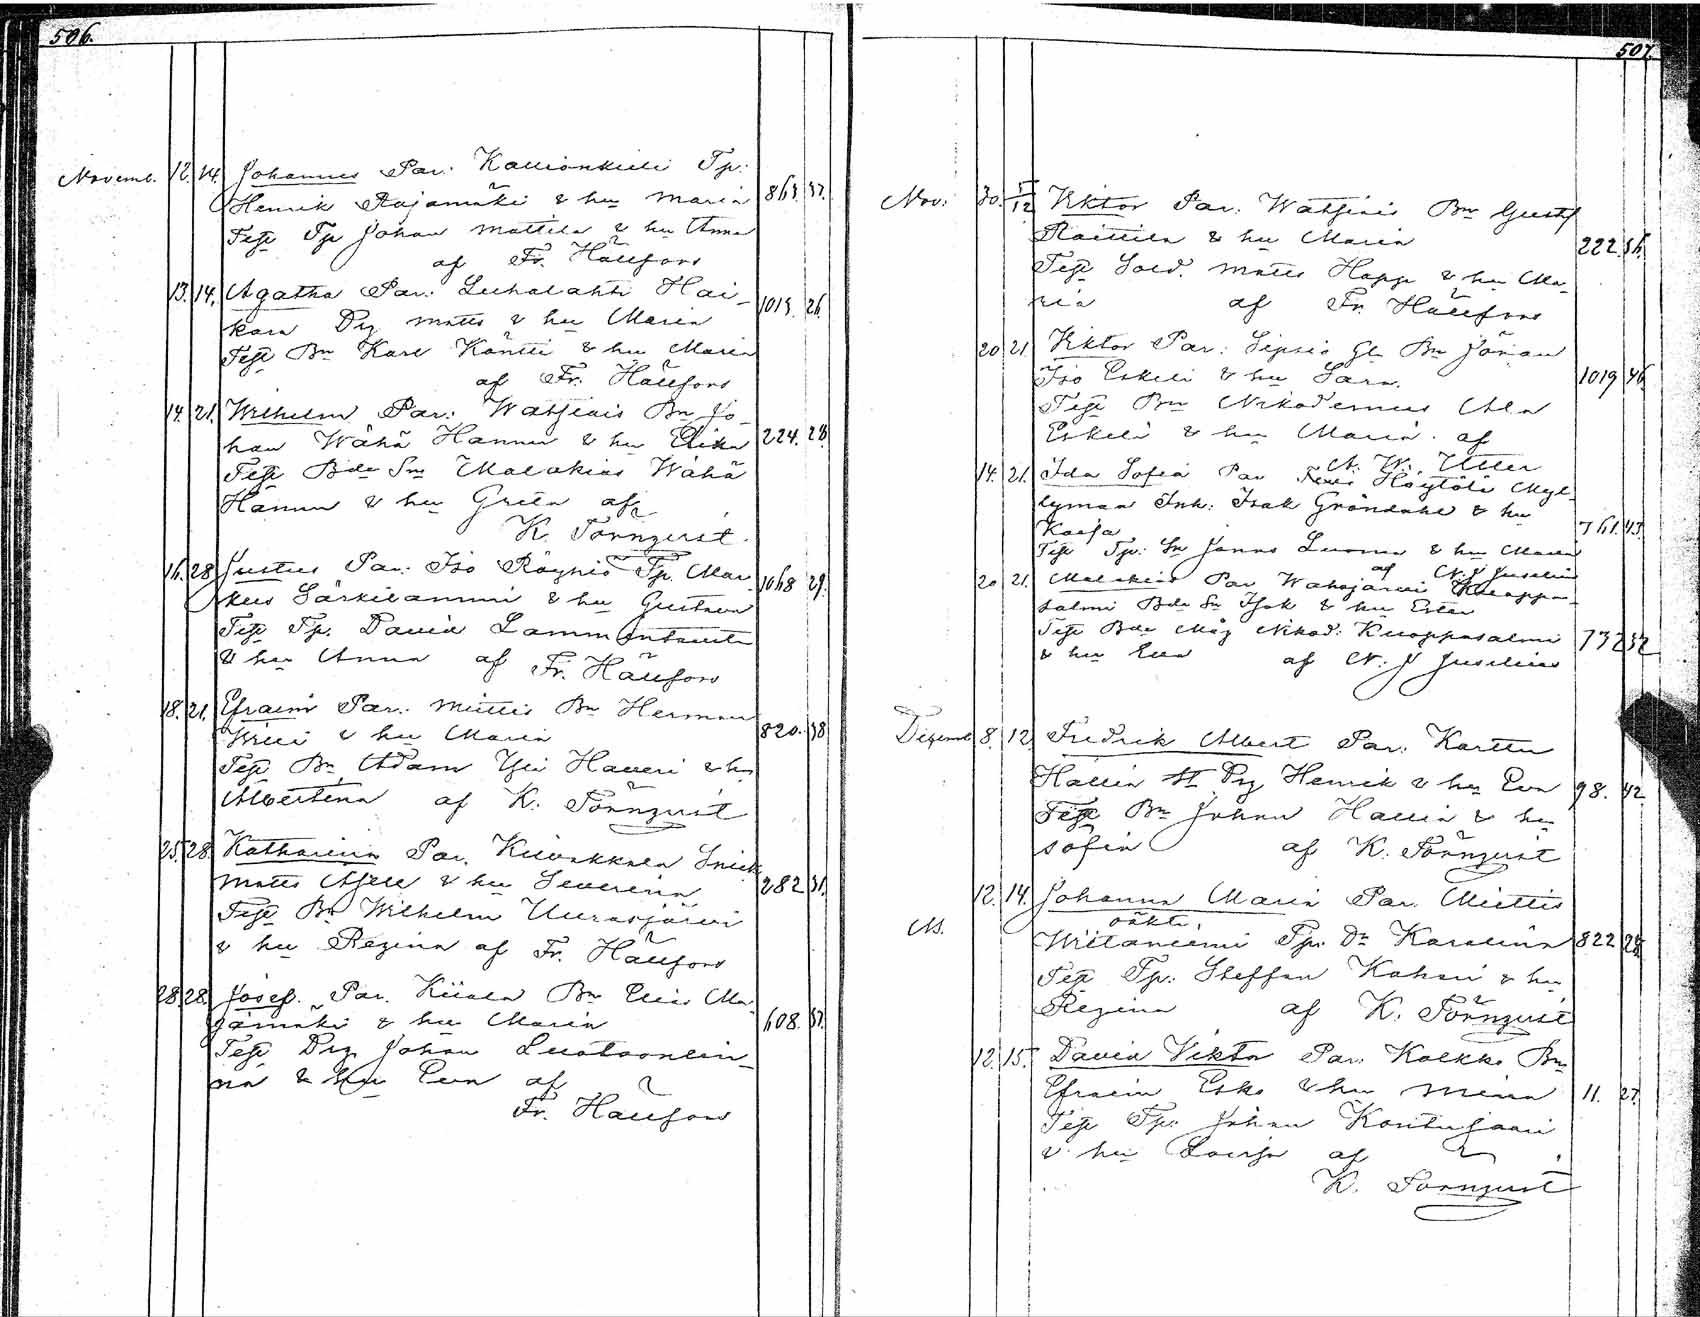 506.
Novemb. 12. 14. Johannes Par: Kallionkieli Tp:
Henrik Rajamäki & hu Maria 863. 37.
Test Tp Johan Mattila & hu Anna
af Fr. Hällfors
13. 14. Agatha Par: Luhalahti Hai-
kara Drg Matts & hu Maria 1013. 26.
Test Bn Karl Köntti & hu Maria
af Fr. Hällfors
14. 21. Wilhelm Par: Watjinis Bn Jo-
han Wähä Hannu & hu Ulrika 224. 28.
Test Bde Sn Malakias Wähä
Hannu & hu Greta af
K. Törnqvist.
16. 28. Justus Par: Iso Röyhiö Tp. Mar-
kus Särkilammi & hu Gustava 1068 29.
Test Tp. David Lammintausta
& hu Anna af Fr. Hällfors
18. 21. Efraim Par: Miettis Bn Herman
Willi & hu Maria 820. 38
Test Bn Adam Yli Haveri & hu
Albertina af K. Törnqvist
25. 28. Katharina Par. Kilvakkala Snick
Matts & hu Severina 282 31.
Test Bn Wilhelm Uurasjärvi
& hu Regina af Fr. Hällfors
28. 28. Josef. Par. Kiiala Bn Elis Ma-
jamäki & hu Maria 608. 37.
Test Drg Johan Luotoonlin-
na & hu Eva af
Fr. Hällfors
507.
Nov: 30. 5/12 Viktor Par: Watjinis Bn Gustf
Raittila & hu Maria 222. 36.
Test Sold. Matts Happ & hu Ma-
ria af Fr. Hällfors
20 21. Viktor Par: Sipsiö Gl Bn Johan
Iso Eskeli & hu Sara. 1019 46.
Test Bn Nikodemus Ala
Eskeli & hu Maria. af
N. W. Uller
14. 21. Ida Sofia Par Höytölä Myl-
lymaa Inh: Isak Gröndahl & hu
Kaisa 761. 43.
Test Tp: Sn Janne Luoma & hu Maria
af N. J Juselius
20 21. Malakias Par Wahojärvi Kuoppa-
salmi Bde Sn Isak & hu Ester
Test Bde Måg Nikod: Kuoppasalmi 732 32
& hu Eva af N. J Juselius
Dezemb 8. 12 Fredrik Albert Par: Karttu
Hallin Drg Henrik & hu Eva 98. 42.
Test Bn Johan Hallin & hu
Sofia af K. Törnqvist
12. 14. Johanna Maria Par. Miettis
oäkta
N. Wiitaniemi Tp: Dr Karolina 822 28.
Test Tp: Steffan Kohni & hu
Regina af K. Törnqvist
12. 15. David Viktor Par: Kolkko Bn
Efraim Esko & hu Miina 11. 27.
Test Tp: Johan Kontusaari
& hu Lovisa af
K. Törnqvist